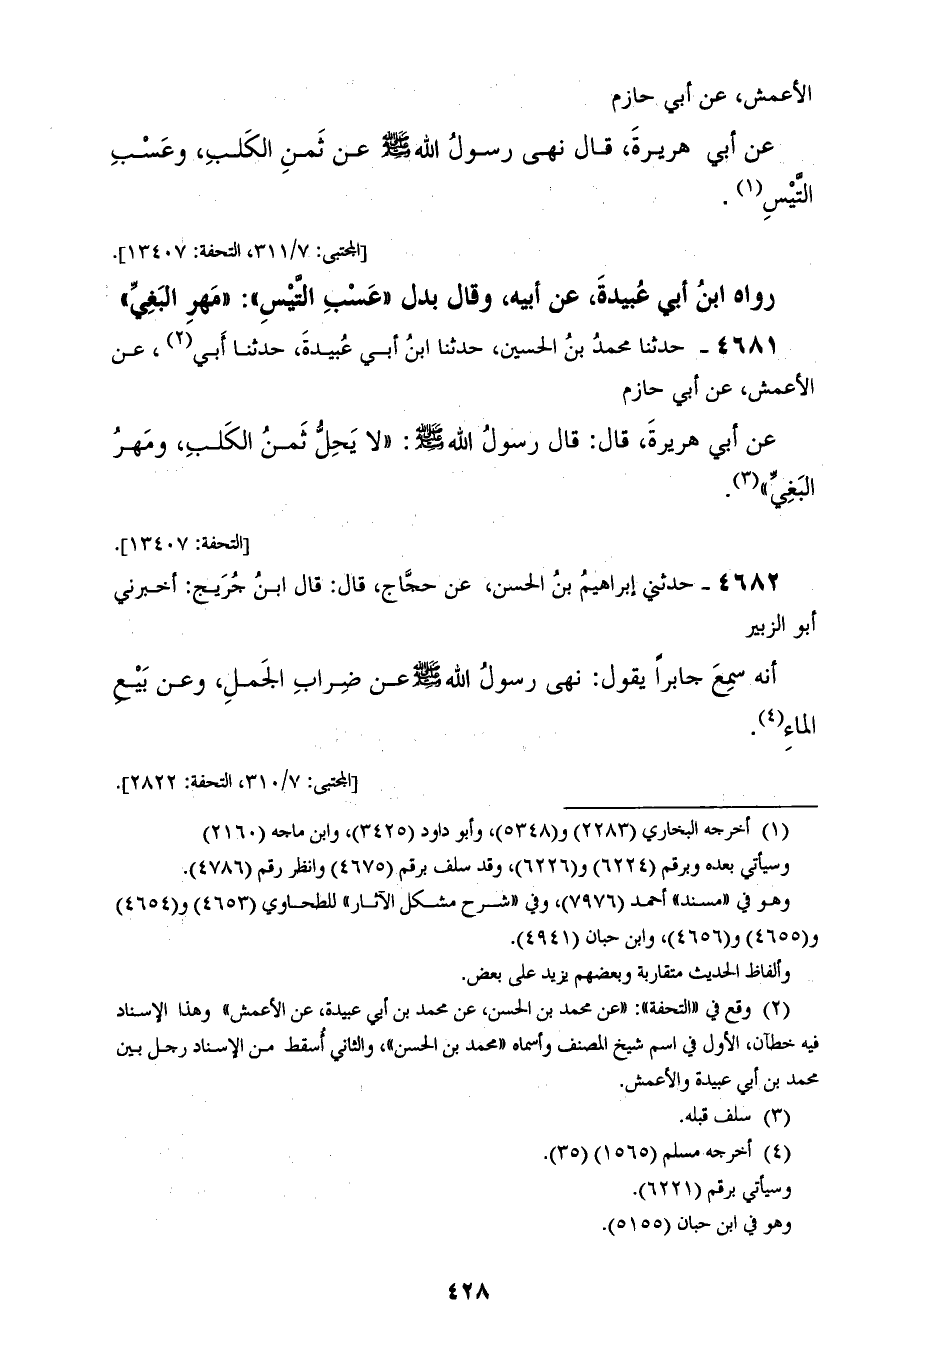 الأعمش، عن أبي حازم
عن أبي هريرةَ، قال نهى رسولُ الله ﷺ عن ثَمنِ الكَلبِ، وعَسْبِ
التَّيْسِ(١).
[المجتبى: ٣١١/٧، التحفة: ١٣٤٠٧].
رواه ابنُ أبي عُبيدةَ، عن أبيه، وقال بدل «عَسْبِ التَّيْسِ»: «مَهرِ البَغِيِّ»
٤٦٨١ ـ حدثنا محمدُ بنُ الحسين، حدثنا ابنُ أبي عُبيدةَ، حدثنا أَبي(٢)، عن
الأعمش، عن أبي حازم
عن أبي هريرةَ، قال: قال رسولُ الله ﷺ: «لا يَحِلُّ ثَمنُ الكَلبِ، ومَهرُ
البَغِيِّ»(٣).
[التحفة: ١٣٤٠٧].
٤٦٨٢ ـ حدثني إبراهيمُ بنُ الحسن، عن حجَّاج، قال: قال ابنُ جُرَيج: أخبرني
أبو الزبير
أنه سمِعَ جابراً يقول: نهى رسولُ الله ﷺ عن ضِرابِ الجَملِ، وعن بَيْعِ
الماءِ(٤).
[المجتبى: ٣١٠/٧، التحفة: ٢٨٢٢].
(١) أخرجه البخاري (٢٢٨٣) و(٥٣٤٨)، وأبو داود (٣٤٢٥)، وابن ماجه (٢١٦٠)
وسيأتي بعده وبرقم (٦٢٢٤) و(٦٢٢٦)، وقد سلف برقم (٤٦٧٥) وانظر رقم (٤٧٨٦).
وهو في «مسند» أحمد (٧٩٧٦)، وفي «شرح مشكل الآثار» للطحاوي (٤٦٥٣) و(٤٦٥٤)
و(٤٦٥٥) و(٤٦٥٦)، وابن حبان (٤٩٤١).
وألفاظ الحديث متقاربة وبعضهم يزيد على بعض.
(٢) وقع في «التحفة»: «عن محمد بن الحسن، عن محمد بن أبي عبيدة، عن الأعمش» وهذا الإسناد
فيه خطآن، الأول في اسم شيخ المصنف وأسماه «محمد بن الحسن»، والثاني أُسقط من الإسناد رجل بين
محمد بن أبي عبيدة والأعمش.
(٣) سلف قبله.
(٤) أخرجه مسلم (١٥٦٥) (٣٥).
وسيأتي برقم (٦٢٢١).
وهو في ابن حبان (٥١٥٥).
٤٢٨